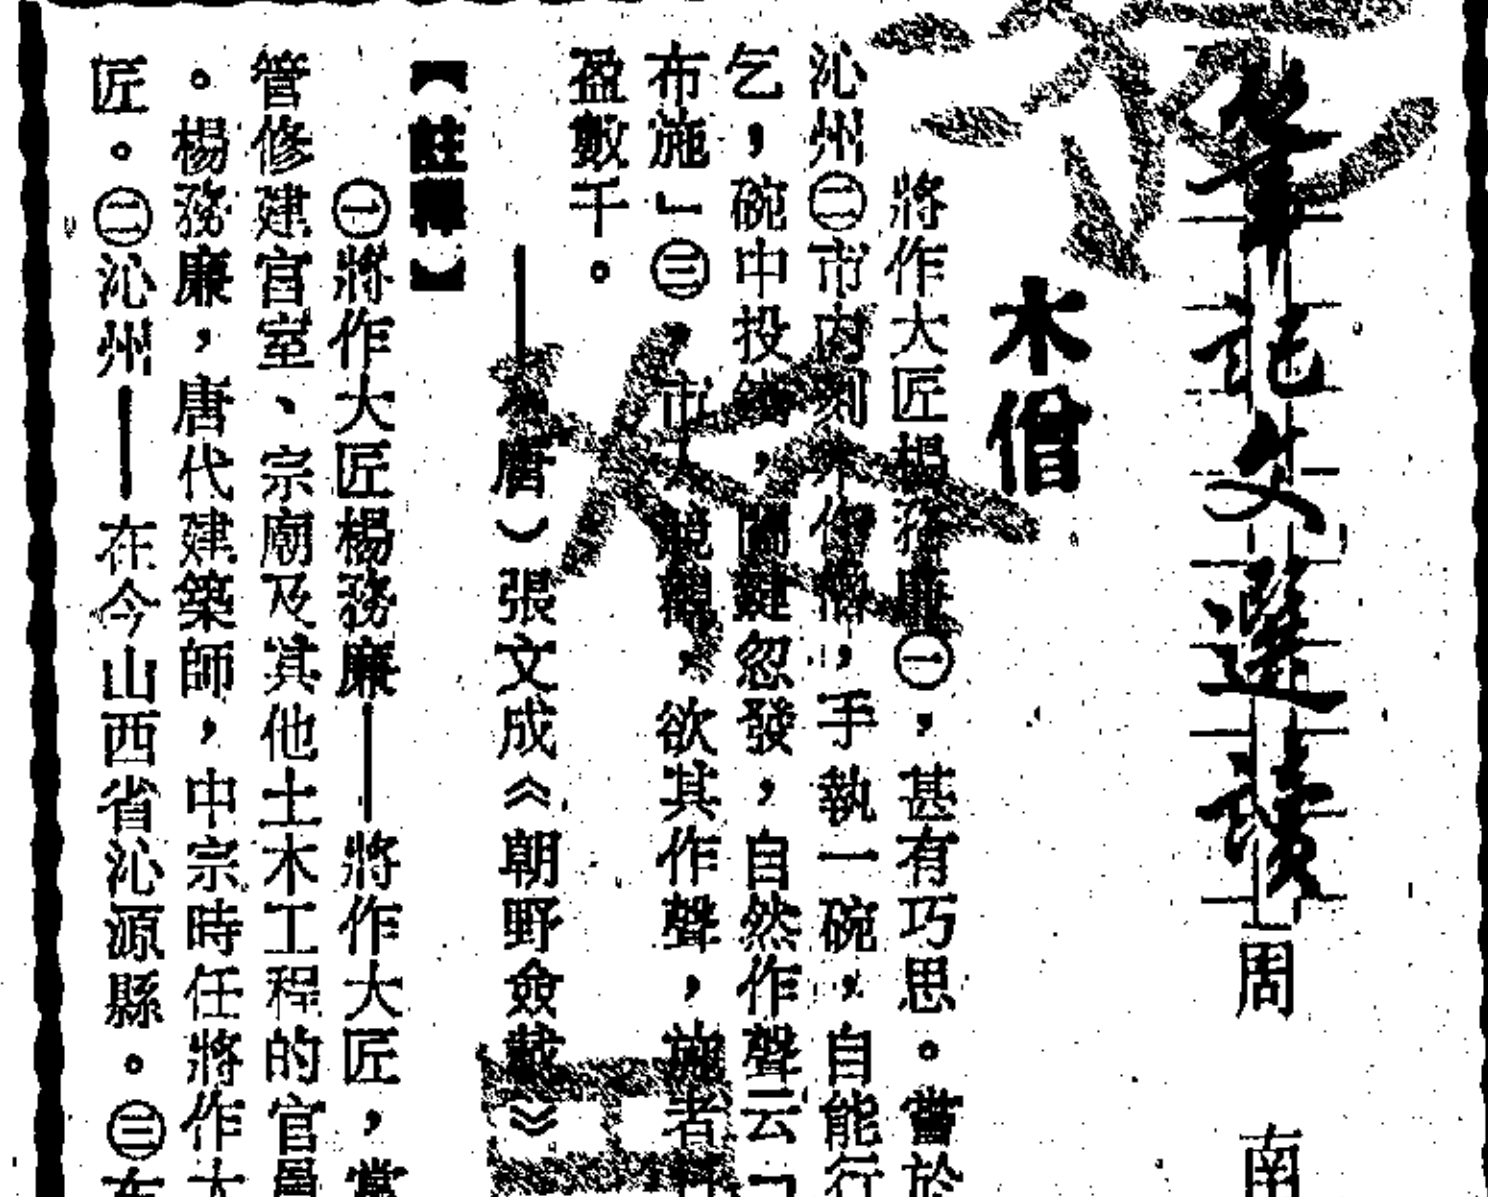 筆記文選讀 周 南
木僧
將作大匠楊務廉㊀，甚有巧思。嘗於
沁州㊁市內刻木作僧，手執一碗，自能行
乞，碗中投錢，關鍵忽發，自然作聲云「
布施」㊂，市人競觀，欲其作聲，施者
盈數千。
——唐）張文成《朝野僉載》
【註釋】
㊀將作大匠楊務廉——將作大匠，掌
管修建宮室、宗廟及其他土木工程的官員
。楊務廉，唐代建築師，中宗時任將作大
匠。㊁沁州——在今山西省沁源縣。㊂布